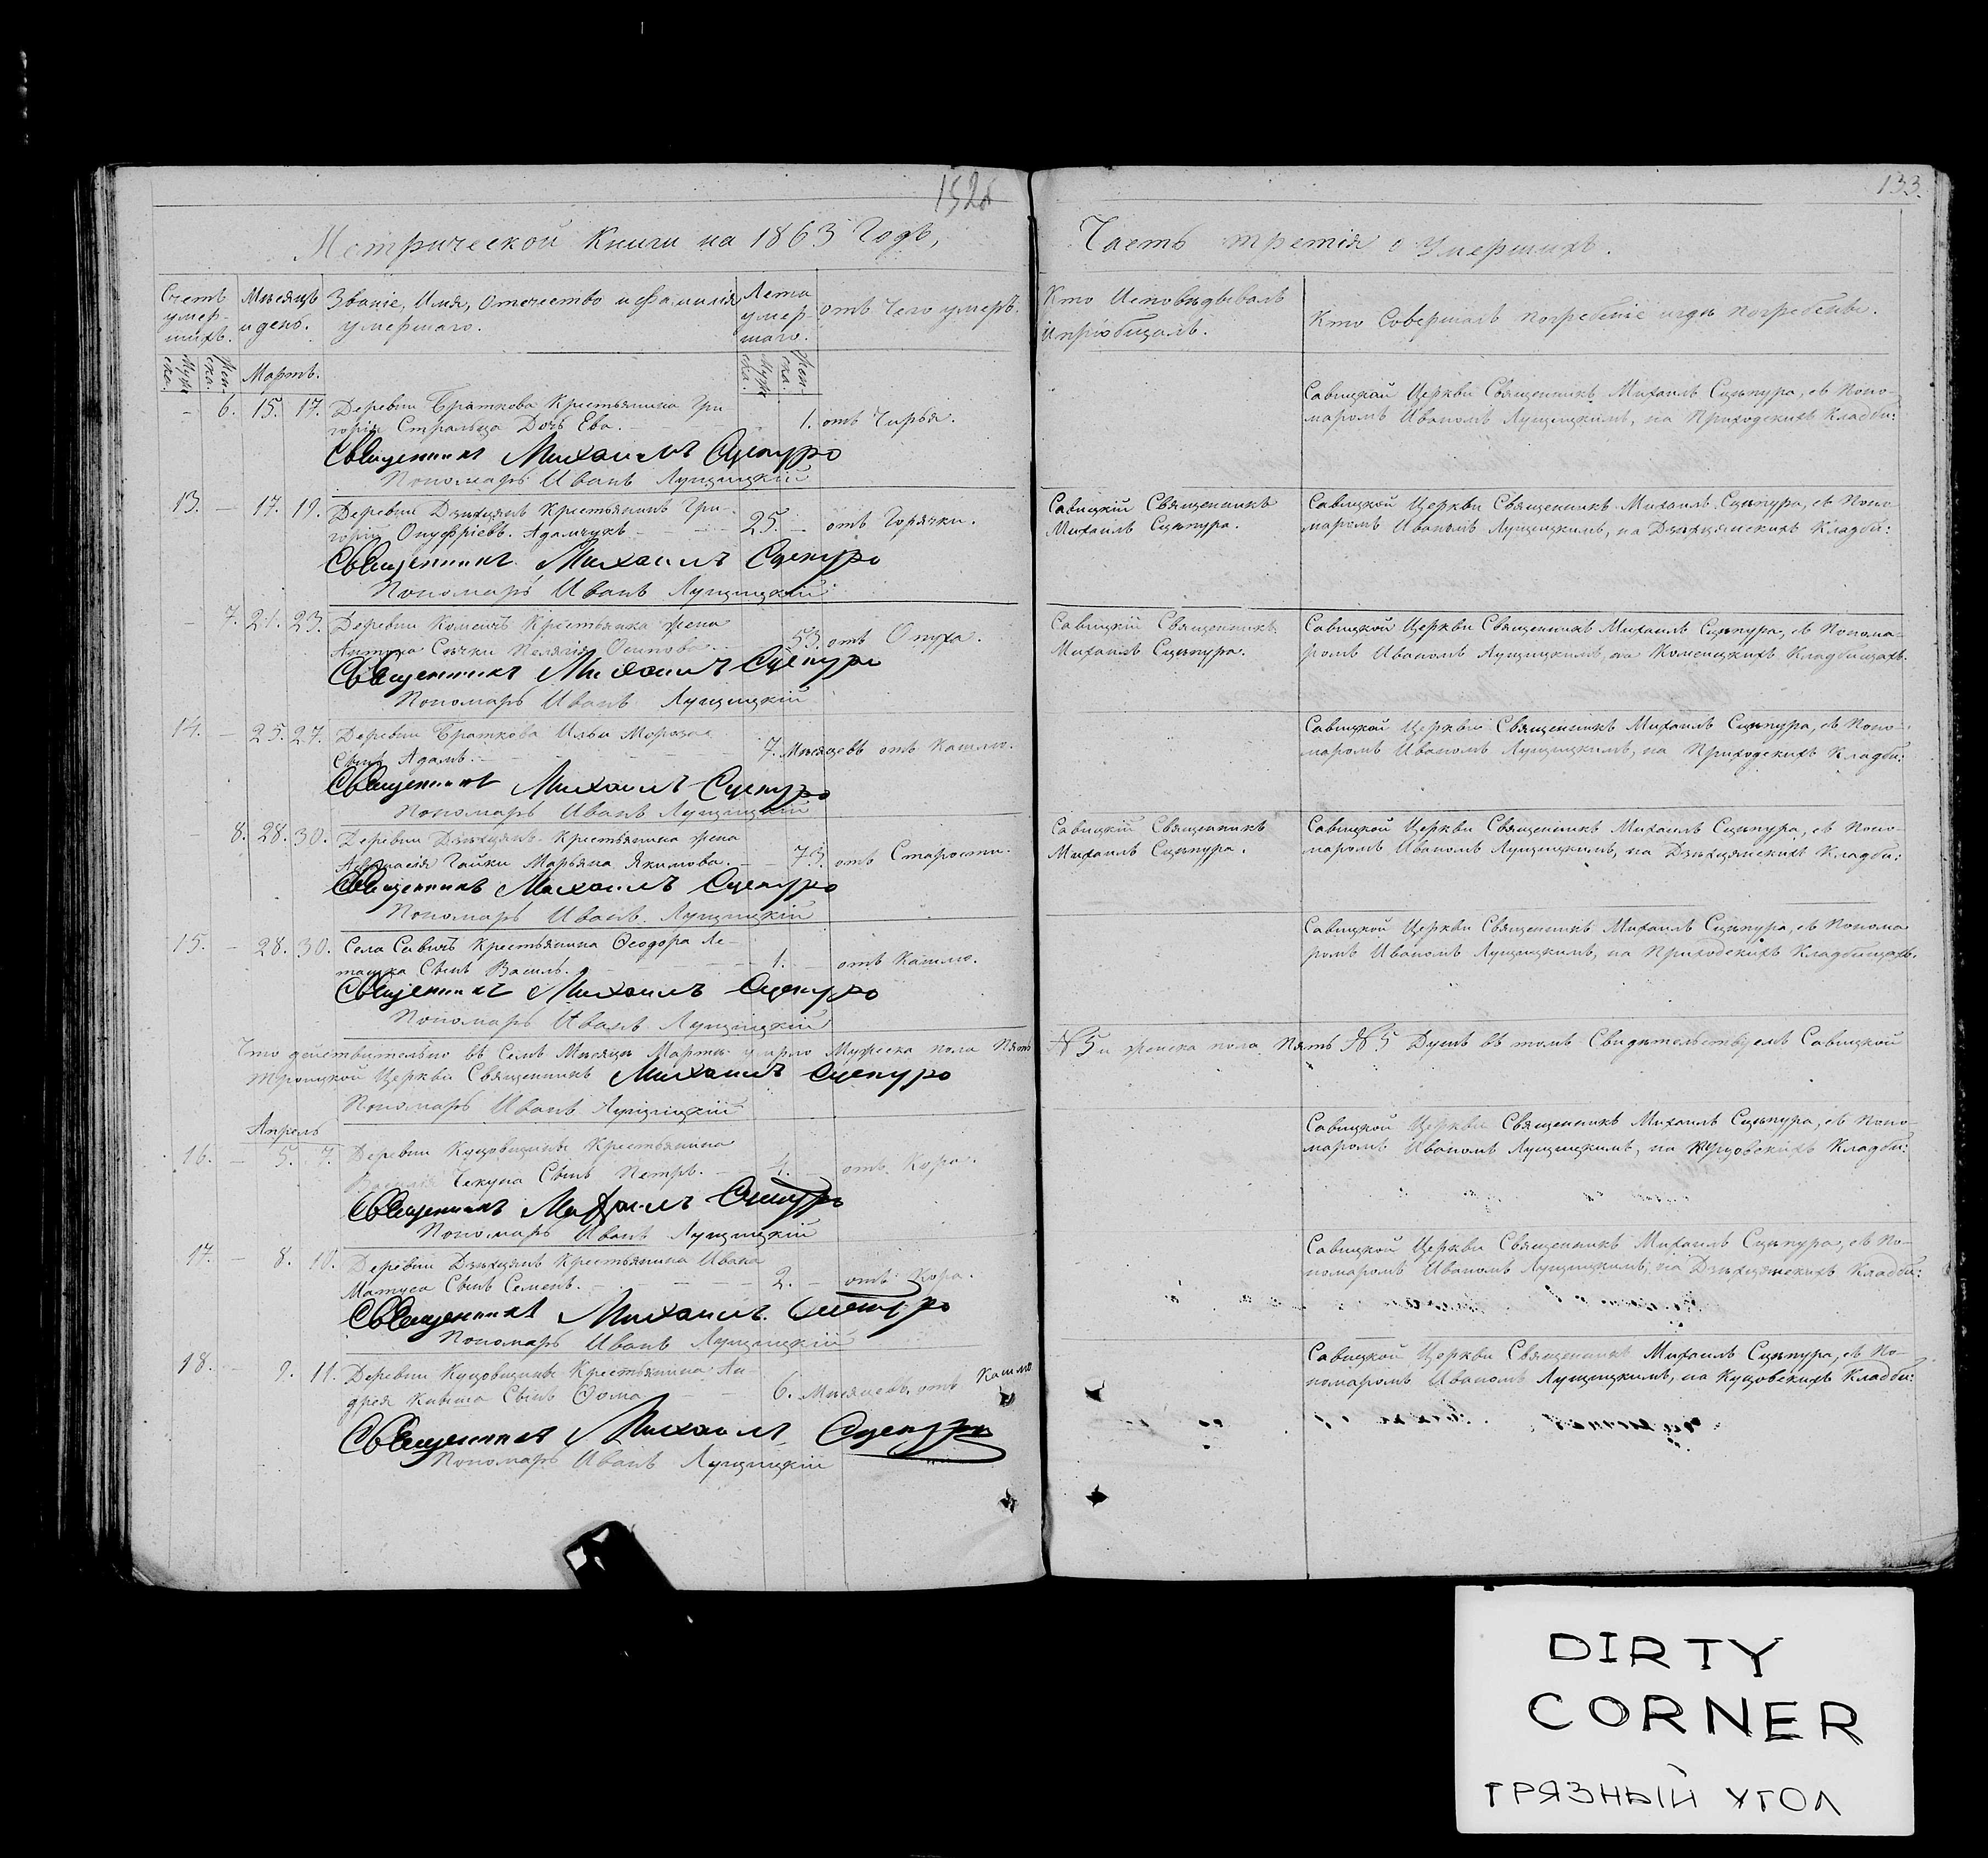 133.
Метрической Книги на 1863 Годъ,
Часть третія о Умершихъ.
Счетъ умер-шихъ.
Мѣсяцъ и день.
Званіе, Имя, Отечество и Фамилія умершаго.
Лета умер-шаго.
отъ Чего умеръ.
Кто Исповѣдывалъ и пріобщалъ.
Кто Совершалъ погребеніе и гдѣ погребенъ.
Мартъ.
– 6. 15. 17. Деревни Браткова Крестьянина Гри-
горія Стральца Дочь Ева. 1. отъ Чирья.
Священникъ Михаилъ Сцепуро
Пономарь Иванъ Лущицкій
Савицкой Церкви Священникъ Михаилъ Сцѣпура, съ Поно-
маромъ Иваномъ Лущицкимъ, на Приходскихъ Кладби:
13. – 17. 19. Деревни Дзѣхцянъ Крестьянинъ Гри-
горій Онуфріевъ Адамчукъ 25. – отъ Горячки.
Священникъ Михаилъ Сцепуро
Пономарь Иванъ Лущицкій
Савицкій Священникъ
Михаилъ Сцѣпура.
Савицкой Церкви Священникъ Михаилъ Сцѣпура, съ Поно-
маромъ Иваномъ Лущицкимъ, на Дзѣхцянскихъ Кладби:
– 7. 21. 23. Деревни Коменъ Крестьянка жена
Антона Сычки Пелагія Осипова. 53. отъ Опуха.
Священникъ Михаилъ Сцепуро
Пономарь Иванъ Лущицкій
Савицкій Священникъ
Михаилъ Сцѣпура.
Савицкой Церкви Священникъ Михаилъ Сцѣпура, съ Понома-
ромъ Иваномъ Лущицкимъ, на Коменскихъ Кладбищахъ.
14. – 25. 27. Деревни Браткова Ильи Мороза
Сынъ Адамъ. 7. Мѣсяцевъ отъ Кашлю.
Священникъ Михаилъ Сцепуро
Пономарь Иванъ Лущицкій
Савицкой Церкви Священникъ Михаилъ Сцѣпура, съ Поно-
маромъ Иваномъ Лущицкимъ, на Приходскихъ Кладби:
– 8. 28. 30. Деревни Дзѣхцянъ Крестьянина жена
Афанасія Гайки Марьяна Якимова. 73. отъ Старости.
Священникъ Михаилъ Сцепуро
Пономарь Иванъ Лущицкій
Савицкій Священникъ
Михаилъ Сцѣпура.
Савицкой Церкви Священникъ Михаилъ Сцѣпура, съ Поно-
маромъ Иваномъ Лущицкимъ, на Дзѣхцянскихъ Кладби:
15. – 28. 30. Села Савичъ Крестьянина Ѳеодора Ле-
Сынъ Василь. 1. – отъ Кашлю.
Священникъ Михаилъ Сцепуро
Пономарь Иванъ Лущицкій
Савицкой Церкви Священникъ Михаилъ Сцѣпура, съ Понома
ромъ Иваномъ Лущицкимъ, на Приходскихъ Кладбищахъ.
Что действительно въ Семъ Мѣсяцѣ Мартѣ умерло Мужеска пола Пять № 5 и женска пола Пять № 5 Душъ въ томъ Свидѣтельствуемъ Савицкой
Троицкой Церкви Священникъ Михаилъ Сцепуро
Пономарь Иванъ Лущицкій
Апрель
16. – 5. 7. Деревни Куцовщины Крестьянина
Василія Чекуна Сынъ Петръ. – отъ Кора.
Священникъ Михаилъ Сцепуро
Пономарь Иванъ Лущицкій
Савицкой Церкви Священникъ Михаилъ Сцѣпура, съ Поно-
маромъ Иваномъ Лущицкимъ, на Кладби:
17. – 8. 10. Деревни Дзѣхцянъ Крестьянина Ивана
Матуса Сынъ Семенъ. 2. – отъ Кора.
Священникъ Михаилъ Сцепуро
Пономарь Иванъ Лущицкій
Савицкой Церкви Священникъ Михаилъ Сцѣпура, съ По-
номаромъ Иваномъ Лущицкимъ, на Дзѣхцянскихъ Кладби:
18. – 9. 11. Деревни Куцовщины Крестьянина Ан-
дрея Сынъ Ѳома 6. Мѣсяцевъ, отъ Кашлю
Священникъ Михаилъ Сцепуро
Пономарь Иванъ Лущицкій
Савицкой Церкви Священникъ Михаилъ Сцѣпура, съ По-
номаромъ Иваномъ Лущицкимъ, на Куцовскихъ Кладби:
DIRTY
CORNER
ГРЯЗНЫЙ УГОЛ